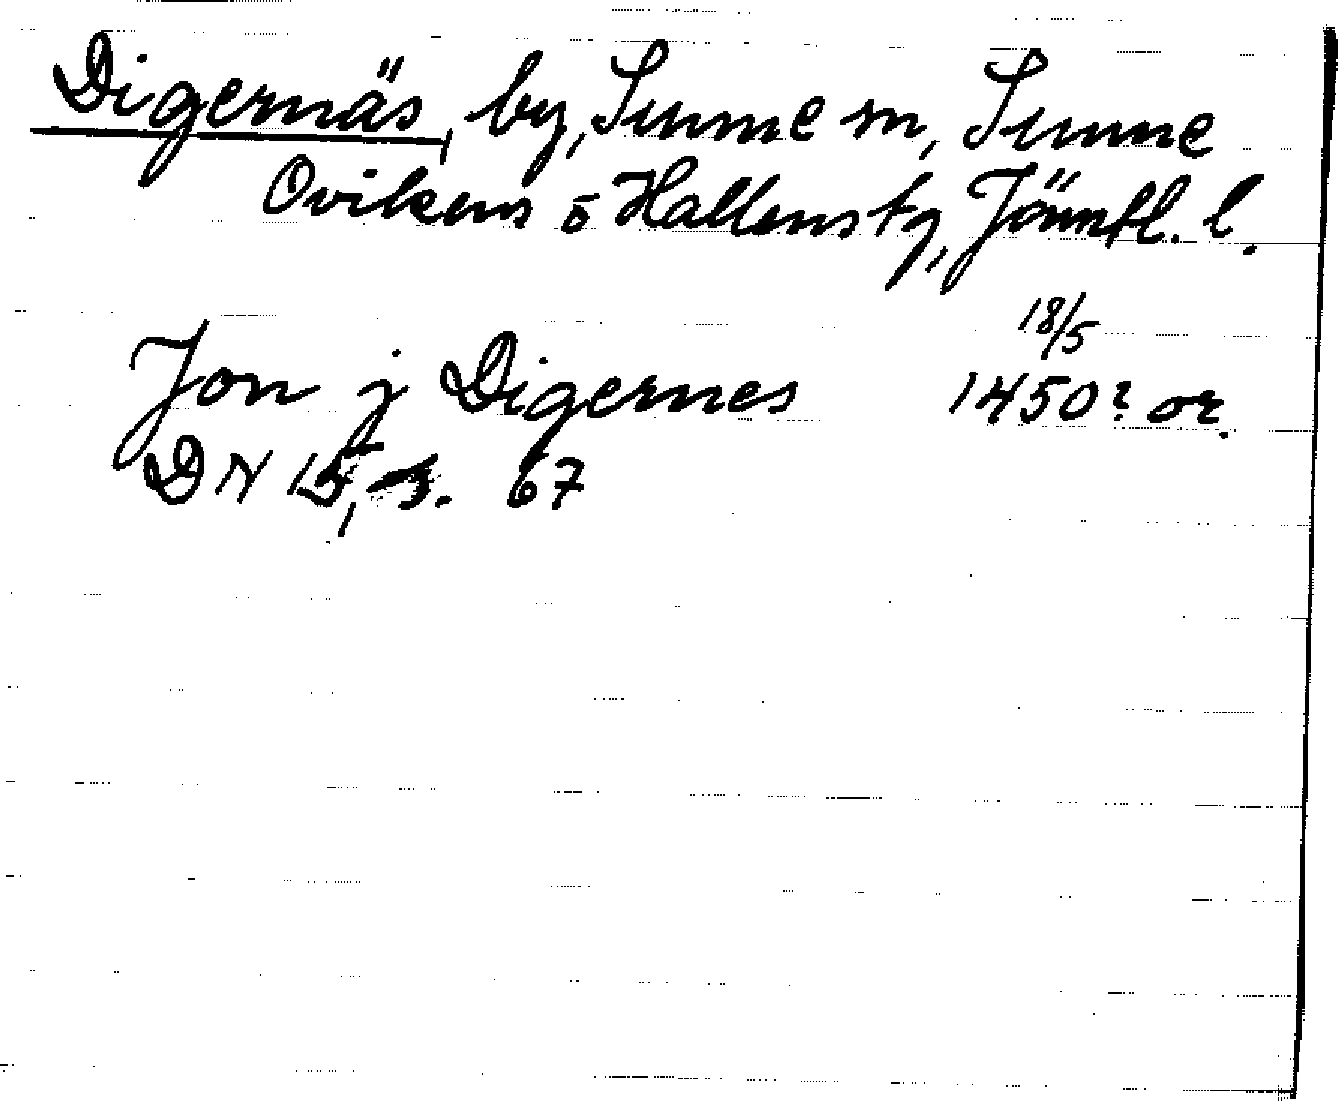 Digernäs, by, Sunne sn, Sunne
Ovikens o Hallens tg, Jämtl. l.
18/5
Jon j Digernes 1450? or.
DN 15, s. 67